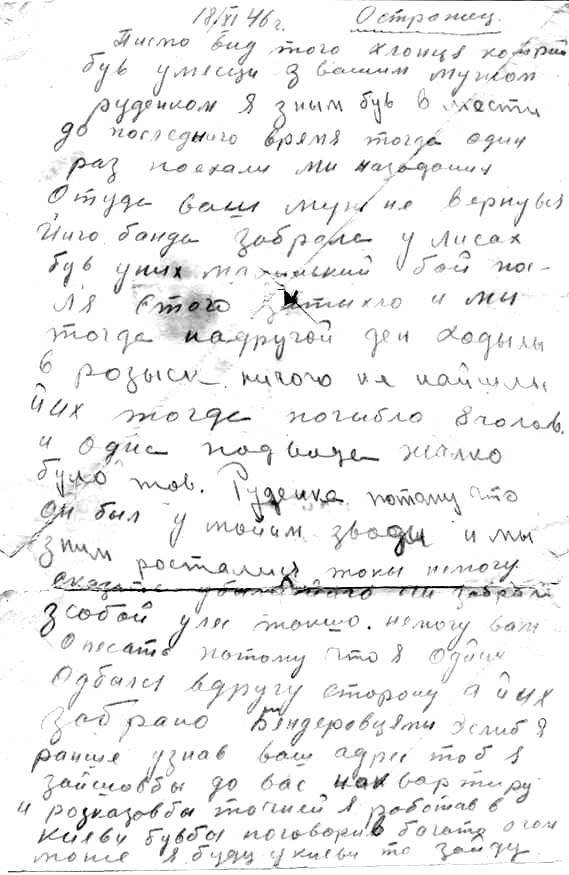 18/XI 46 г. Остражец.
Писмо вид того хлопця котрий
був умести з вашим мужом
руденком я зным був в мести
до последнього время тогда один
раз поехали ми назадания
Отуда ваш муж не вернувся
Його банда забрала у лисах
був уних маленький бой по-
ля етого затихло и ми
тогда надругой ден ходылы
в розыск ничого не найшлы
йих тогда погибло 8 голов.
и одна подвода жалко
було тов. Руденка потому что
он был у мойим зводи и мы
зным росталися токы немогу
сказать убили його чи забрали
зсобой улес живого. немогу вам
Описать потому что я один
Одбился вдругу сторону а йих
забрано Бендеровцямы Эслиб я
ранше узнав ваш адрес тоб я
зайшовбы до вас на квартиру
и розказовбы точней я роботав в
киеви бувбы поговорив богато очом
може я буду укиеви то зайду